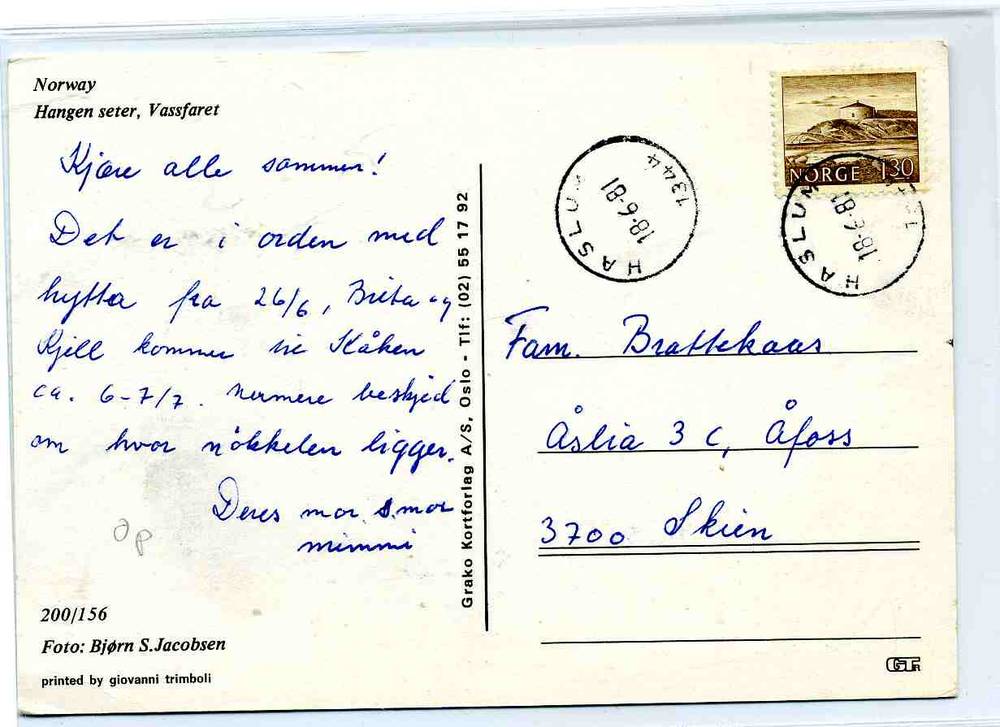 Norway
Hangen seter, Vassfaret
Kjære alle sammen!
Det er i orden med
hytta fra 26/6, Brita og
Kjell kommer til Kåken
ca. 6-7/7. nermere beskjed
om hvor nökkelen ligger.
Deres mor s.mor
mimmi
Op
200/156
Foto: Bjørn S.Jacobsen
printed by giovanni trimboli
Grako Kortforlag A/S, Oslo - Tlf: (02) 55 17 92
1344
18-6-81
HASLUM
NORGE 130
18-6-81
HASLUM
Fam. Brattekaas
Åslia 3 C, Åfoss
3700 Skien